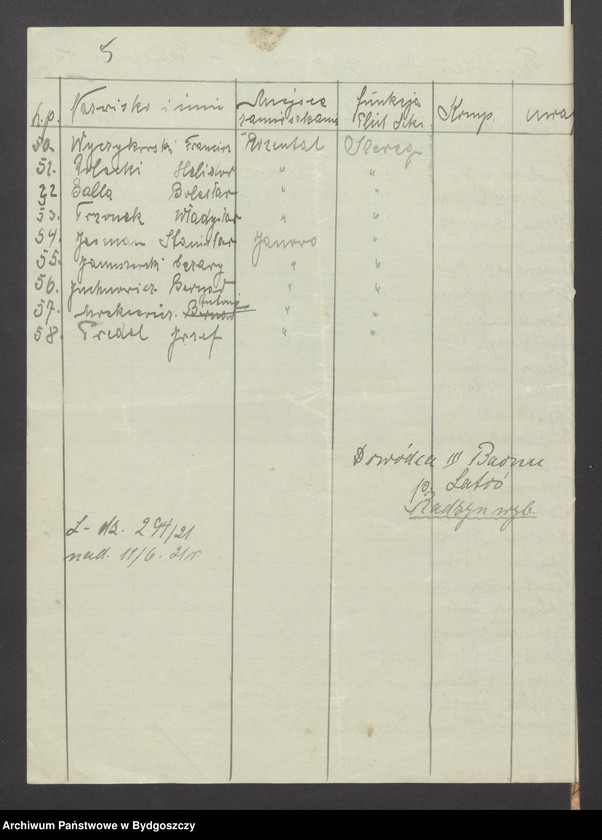 5
L.p. Nazwisko i imię Miejsce zamieszkania funkcja Komp.
50. Wyczykowski Francisz Rozental Szereg
51. Heliodor " "
52 Balla Bolesław " "
53. Trzonek Władysław " "
54. Jasman Stanisław Janowo "
55. Januszewski Cezary " "
56. Juchnowicz Bernard " "
Antoni
57. Mrekiewicz Bernard " "
58. Fredel Józef " "
Dowódca III Baonu
p. Latoś
Radzyn wyb.
L-dz. 294/21
nad. 11/6. 21r.
Archiwum Państwowe w Bydgoszczy